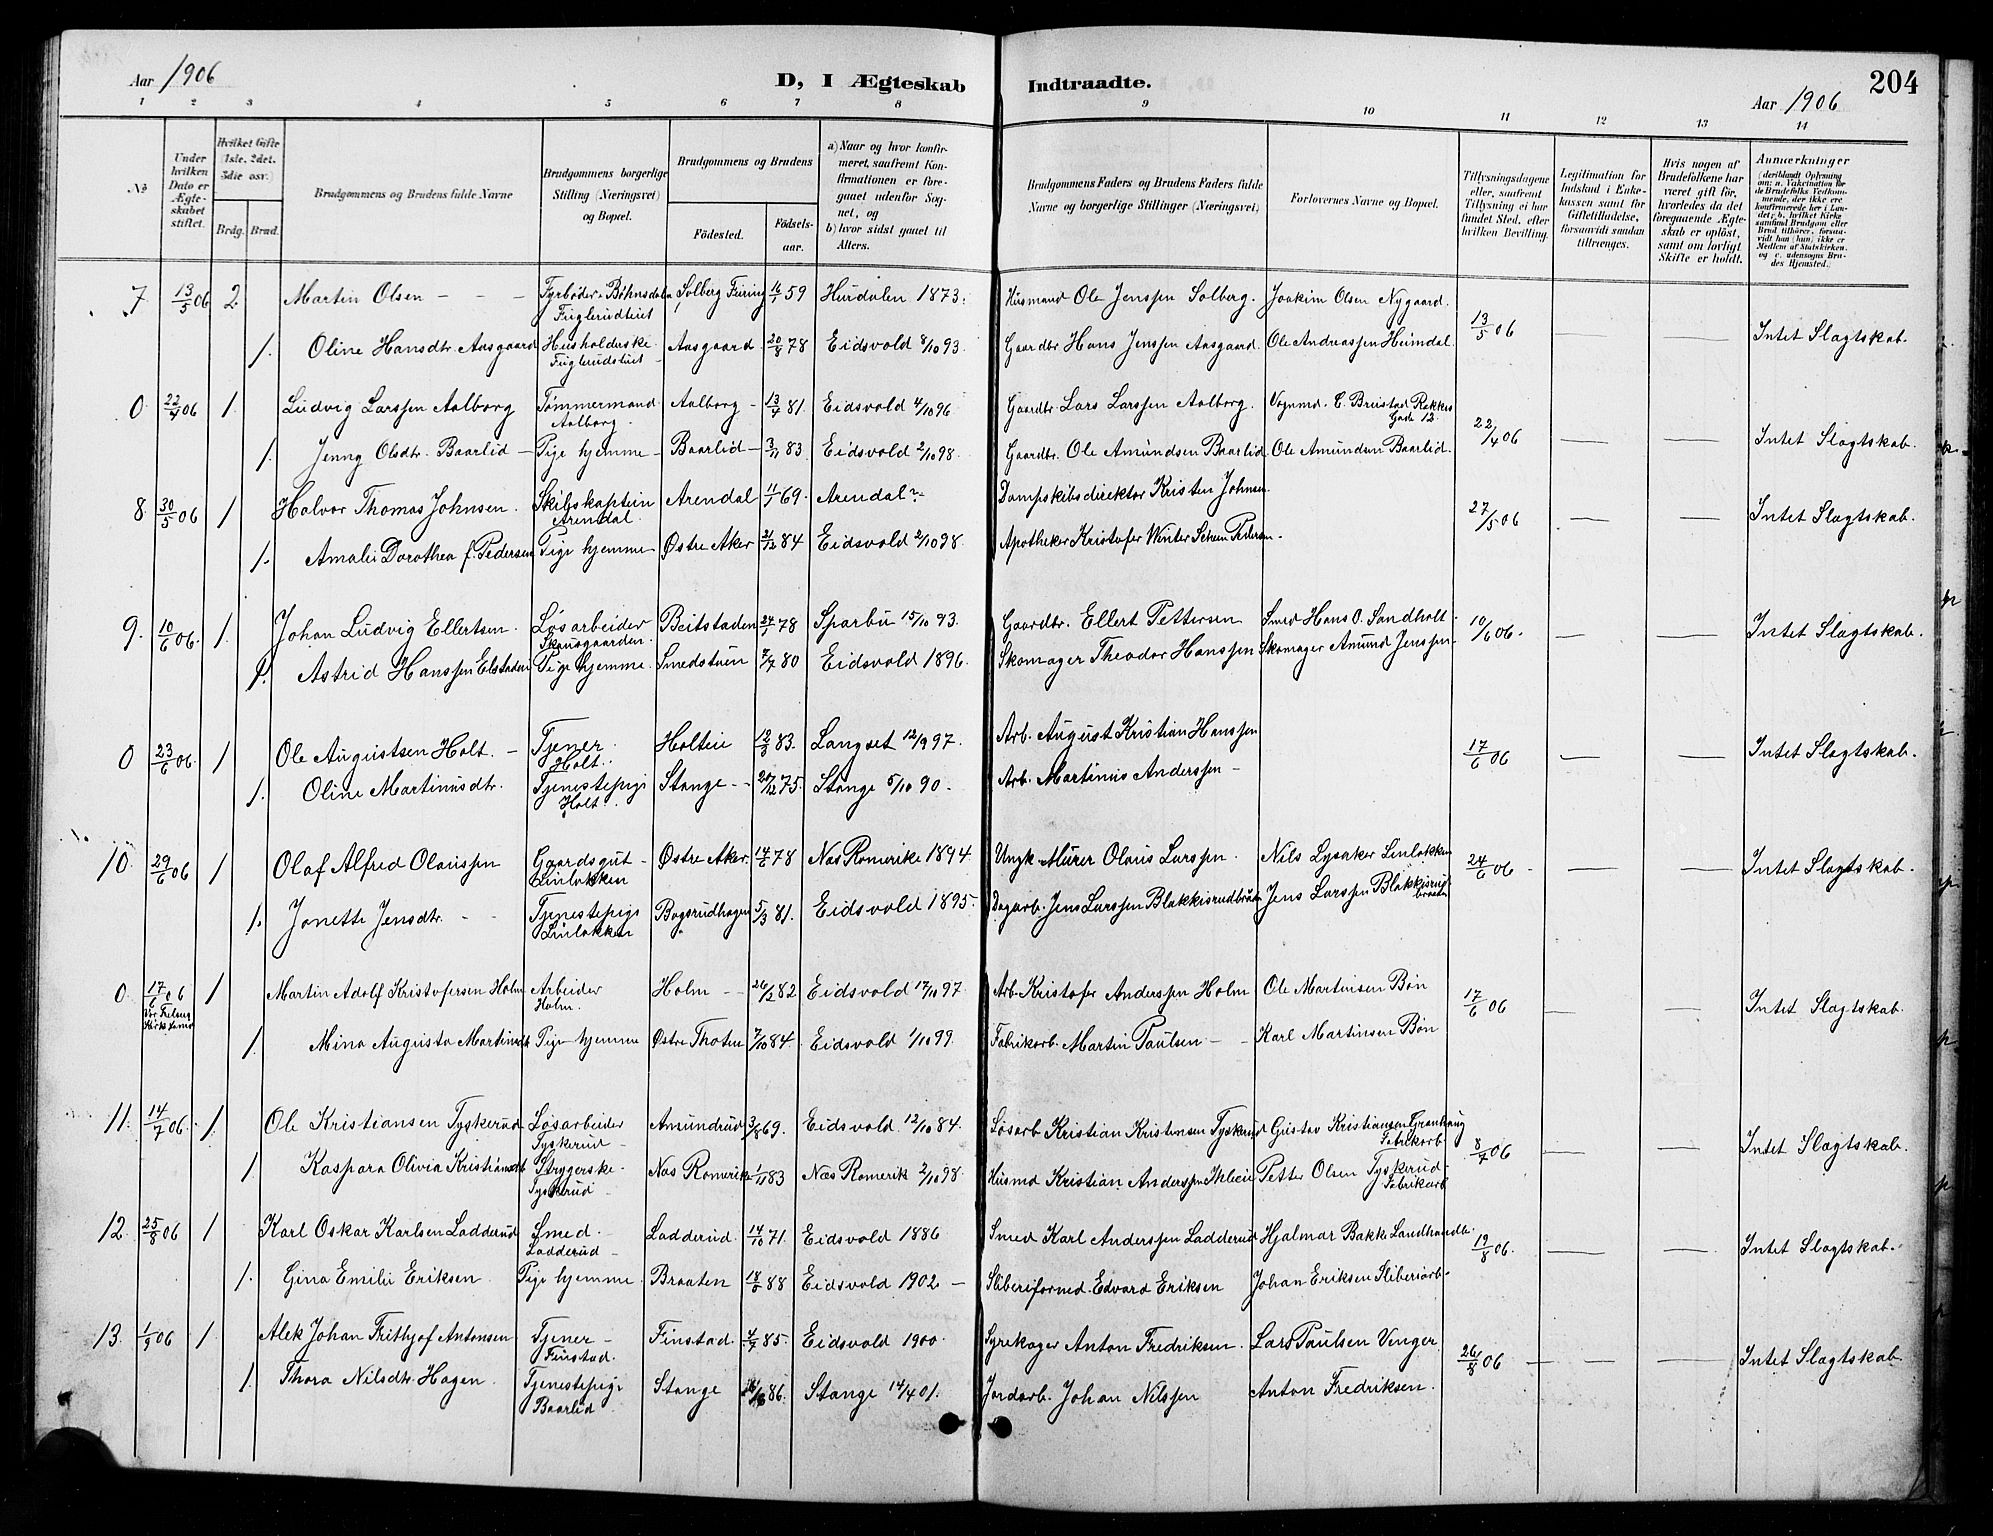 Aar 1906
D, I Ægteskab Indtraadte.
204
Aar 1906
1 2 3 4 5 6 7 8 9 10 11 12 13 14
No
Under hvilken Dato er Ægteskabet stiftet.
Hvilket Gifte 1ste, 2det, 3die osv.)
Brdg. Brud.
Brudgommens og Brudens fulde Navne
Brudgommens borgerlige Stilling (Næringsvei) og Bopæl.
Brudgommens og Brudens
Fødested.
Fødselsaar.
a) Naar og hvor konfirmeret, saafremt Konfirmationen er foregaaet udenfor Sognet, og
b) hvor sidst gaaet til Alters.
Brudgommens Faders og Brudens Faders fulde Navne og borgerlige Stillinger (Næringsvei)
Forlovernes Navne og Bopæl.
Tillysningsdagene eller, saafremt Tillysning ei har fundet Sted, efter hvilken Bevilling.
Legitimation for Indskud i Enkekassen samt for Giftetilladelse, forsaavidt saadan tiltrænges.
Hvis nogen af Brudefolkene har været gift før, hvorledes da det foregaaende Ægteskab er opløst, samt om lovligt Skifte er holdt.
Anmærkninger (deriblandt Oplysning om: a. Vakcination for de Brudefolks Vedkommende, der ikke ere konfirmerede her i Landet; b. hvilket Kirkesamfund Brudgom eller Brud tilhører, forsaavidt han (hun) ikke er Medlem af Statskirken, og c. udensogns Brudes Hjemsted.)
7. 13/5 06 2 Martin Olsen - - - Fyrbøder Bøhnsdalen Solberg Feiring 16/1 59 Hurdalen 1873. Husmand Ole Jenssen Solberg. Joakim Olsen Nygaard. 13/5 06 — — Intet Slægtskab.
1. Oline Hansdtr. Aasgaard Husholderske Aasgaard 20/8 78 Eidsvold 8/10 93. Gaardbr. Hans Jenssen Aasgaard. Ole Andreassen Heimdal.
0 22/4 06 1. Ludvig Larssen Aalborg Tømmermand Aalborg. Aalborg - 13/4 81. Eidsvold 4/10 96 Gaardbr. Lars Larssen Aalborg. Vognmd. C. Brustad Rakkes Gade 12. 22/4 06 — — Intet Slægtskab.
1. Jenny Olsdtr. Baarlid - Pige hjemme - Baarlid - 3/11 83 Eidsvold 2/10 98. Gaardbr. Ole Amundsen Baarlid. Ole Amundsen Baarlid.
8. 30/5 06 1 Halvor Thomas Johnsen. Skibskaptein Arendal. Arendal 11/1 69. Arendal ?- Dampskibsdirektør Kristen Johnsen. 27/5 06 — — Intet Slægtskab.
1. Amalie Dorothea f. Pedersen Pige hjemme - Østre Aker 21/12 84 Eidsvold 2/10 98. Apotheker Kristofer Winter Pedersen.
9. 10/6 06. 1. Johan Ludvig Ellertsen. Løsarbeider Skausgaarden. Beitstaden 24/1 78 Sparbu 15/10 93. Gaardbr. Ellert Pettersen Smed Hans O. Sandholt. 10/6 06. — — Intet Slægtskab.
1. Astrid Hanssen Elstaden Pige hjemme. Smedstuen 7/7 80 Eidsvold 1896. Skomager Theodor Hanssen Skomager Amund Jenssen.
0 23/6 06 1 Ole Augustsen Holt. - Tjener. Holt. Holteie 12/3 83. Langset 12/9 97. Arb. August Kristian Hanssen 17/6 06 — — Intet Slægtskab.
1. Oline Martinusdtr. Tjenestepige Holt. Stange - - 24/12 75. Stange 5/10 90 - Arb. Martinus Anderssen -
10. 29/6 06 1 Olaf Alfred Olaussen Gaardsgut - Linløkken Østre Aker. 14/6 78 Næs Romerike 1894. Ungk. Murer Olaus Larssen. Nils Lysaker Linløkken 24/6 06 — — Intet Slægtskab.
1. Jonette Jensdtr. - - Tjenestepige Linløkken Bøgsrudhagen 5/3 81. Eidsvold 1895. Dagarb. Jens Larssen Blakkisrudbraaten Jens Larssen Blakkisrudbraaten
0. 17/6 06 1 Martin Adolf Kristofersen Holm Arbeider Holm. Holm - - 26/12 82 Eidsvold 17/10 97. Arb. Kristofer Anderssen Holm Ole Martinsen Bøn 17/6 06 — — Intet Slægtskab.
Vor Frelsers Kirke
1. Mina Augusta Martinsdt. Pige hjemme Østre Thoten 7/10 84. Eidsvold 1/10 99. Fabrikarb. Martin Paulsen - - Karl Martinsen Bøn
11. 14/7 06. 1 Ole Kristiansen Tyskerud Løsarbeider Tyskerud - Amundrud 3/8 69. Eidsvold 12/10 84. Løsarb. Kristian Kristensen Tyskerud Gustav Kristiansen Granhaug Fabrikarb. 8/7 06 — — Intet Slægtskab.
1 Kaspara Olivia Kristiansdt. Strygerske - Tyskerud - Næs Romerike 1/11 83 Næs Romerik 2/10 98. Husmd Kristian Anderssen Petter Olsen Tyskerud - Fabrikarb.
12. 25/8 06 1 Karl Oskar Karlsen Ladderud Smed. Ladderud - Ladderud. 14/10 71. Eidsvold 1886 Smed Karl Anderssen Ladderud Hjalmar Bakke Landhandler. 19/8 06. — — Intet Slægtskab.
1. Gina Emilie Eriksen. Pige hjemme. Braaten 18/8 88 Eidsvold 1902 - Sliberiformd. Edvard Eriksen Johan Eriksen Sliberiarb.
13. 1/9 06 1 Alek Johan Frithjof Antonsen Tjener - Finstad. Finstad. 4/7 85. Eidsvold 1900. Anton Fredriksen. Lars Paulsen Venger 26/8 06 — — Intet Slægtskab.
1. Thora Nilsdtr. Hagen. Tjenestepige Baarlid Stange 86. Stange 14/4 01. Jordarb. Johan Nilssen Anton Fredriksen.